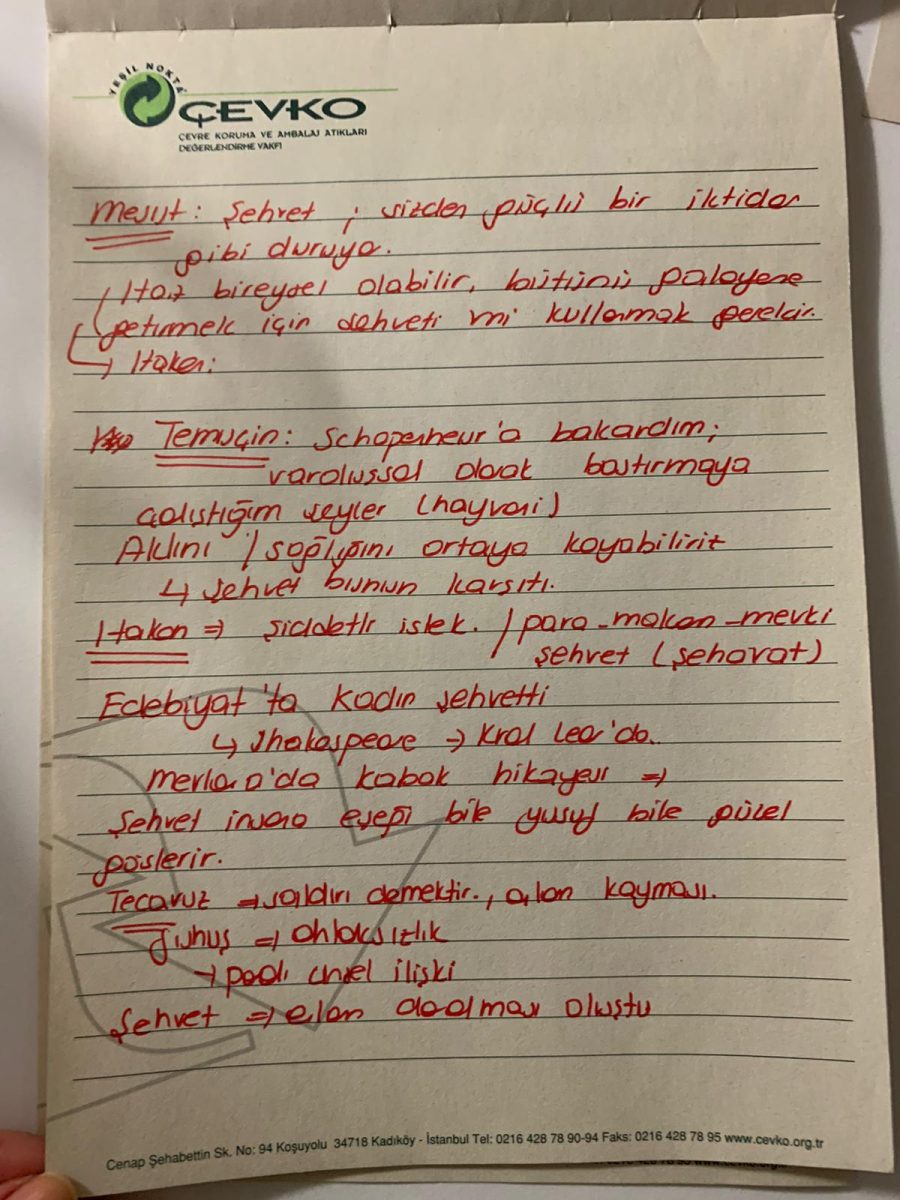 YEŞİL NOKTA
ÇEVKO
ÇEVRE KORUMA VE AMBALAJ ATIKLARI
DEĞERLENDİRME VAKFI
Mesut: Şehret ; sizden güçlü bir iktidar
gibi duruyo.
Haz bireysel olabilir, bütünü galeyene
getirmek için şehveti mi kullanmak gerekir.
→ Hakan:
Temuçin: Schopenheur'a bakardım;
varoluşsal olarak bastırmaya
çalıştığım şeyler (hayvani)
Aklını / sağlığını ortaya koyabilirit
↳ şehvet bunun karşıtı.
Hakan ⇒ şiddetli istek. / para-makam-mevki
şehvet (şehavat)
Edebiyat'ta kadın şehvetti
↳ Shakespeare → Kral Lear'da..
Mevlana'da kabak hikayesi ⇒
Şehvet insana eşeği bile yusuf bile güzel
gösterir.
Tecavuz ⇒ saldırı demektir., alan kayması.
fuhuş ⇒ ahlaksızlık
→ cinsel ilişki
Şehvet ⇒ alan daalması oluştu
Cenap Şehabettin Sk. No: 94 Koşuyolu 34718 Kadıköy - İstanbul Tel: 0216 428 78 90-94 Faks: 0216 428 78 95 www.cevko.org.tr